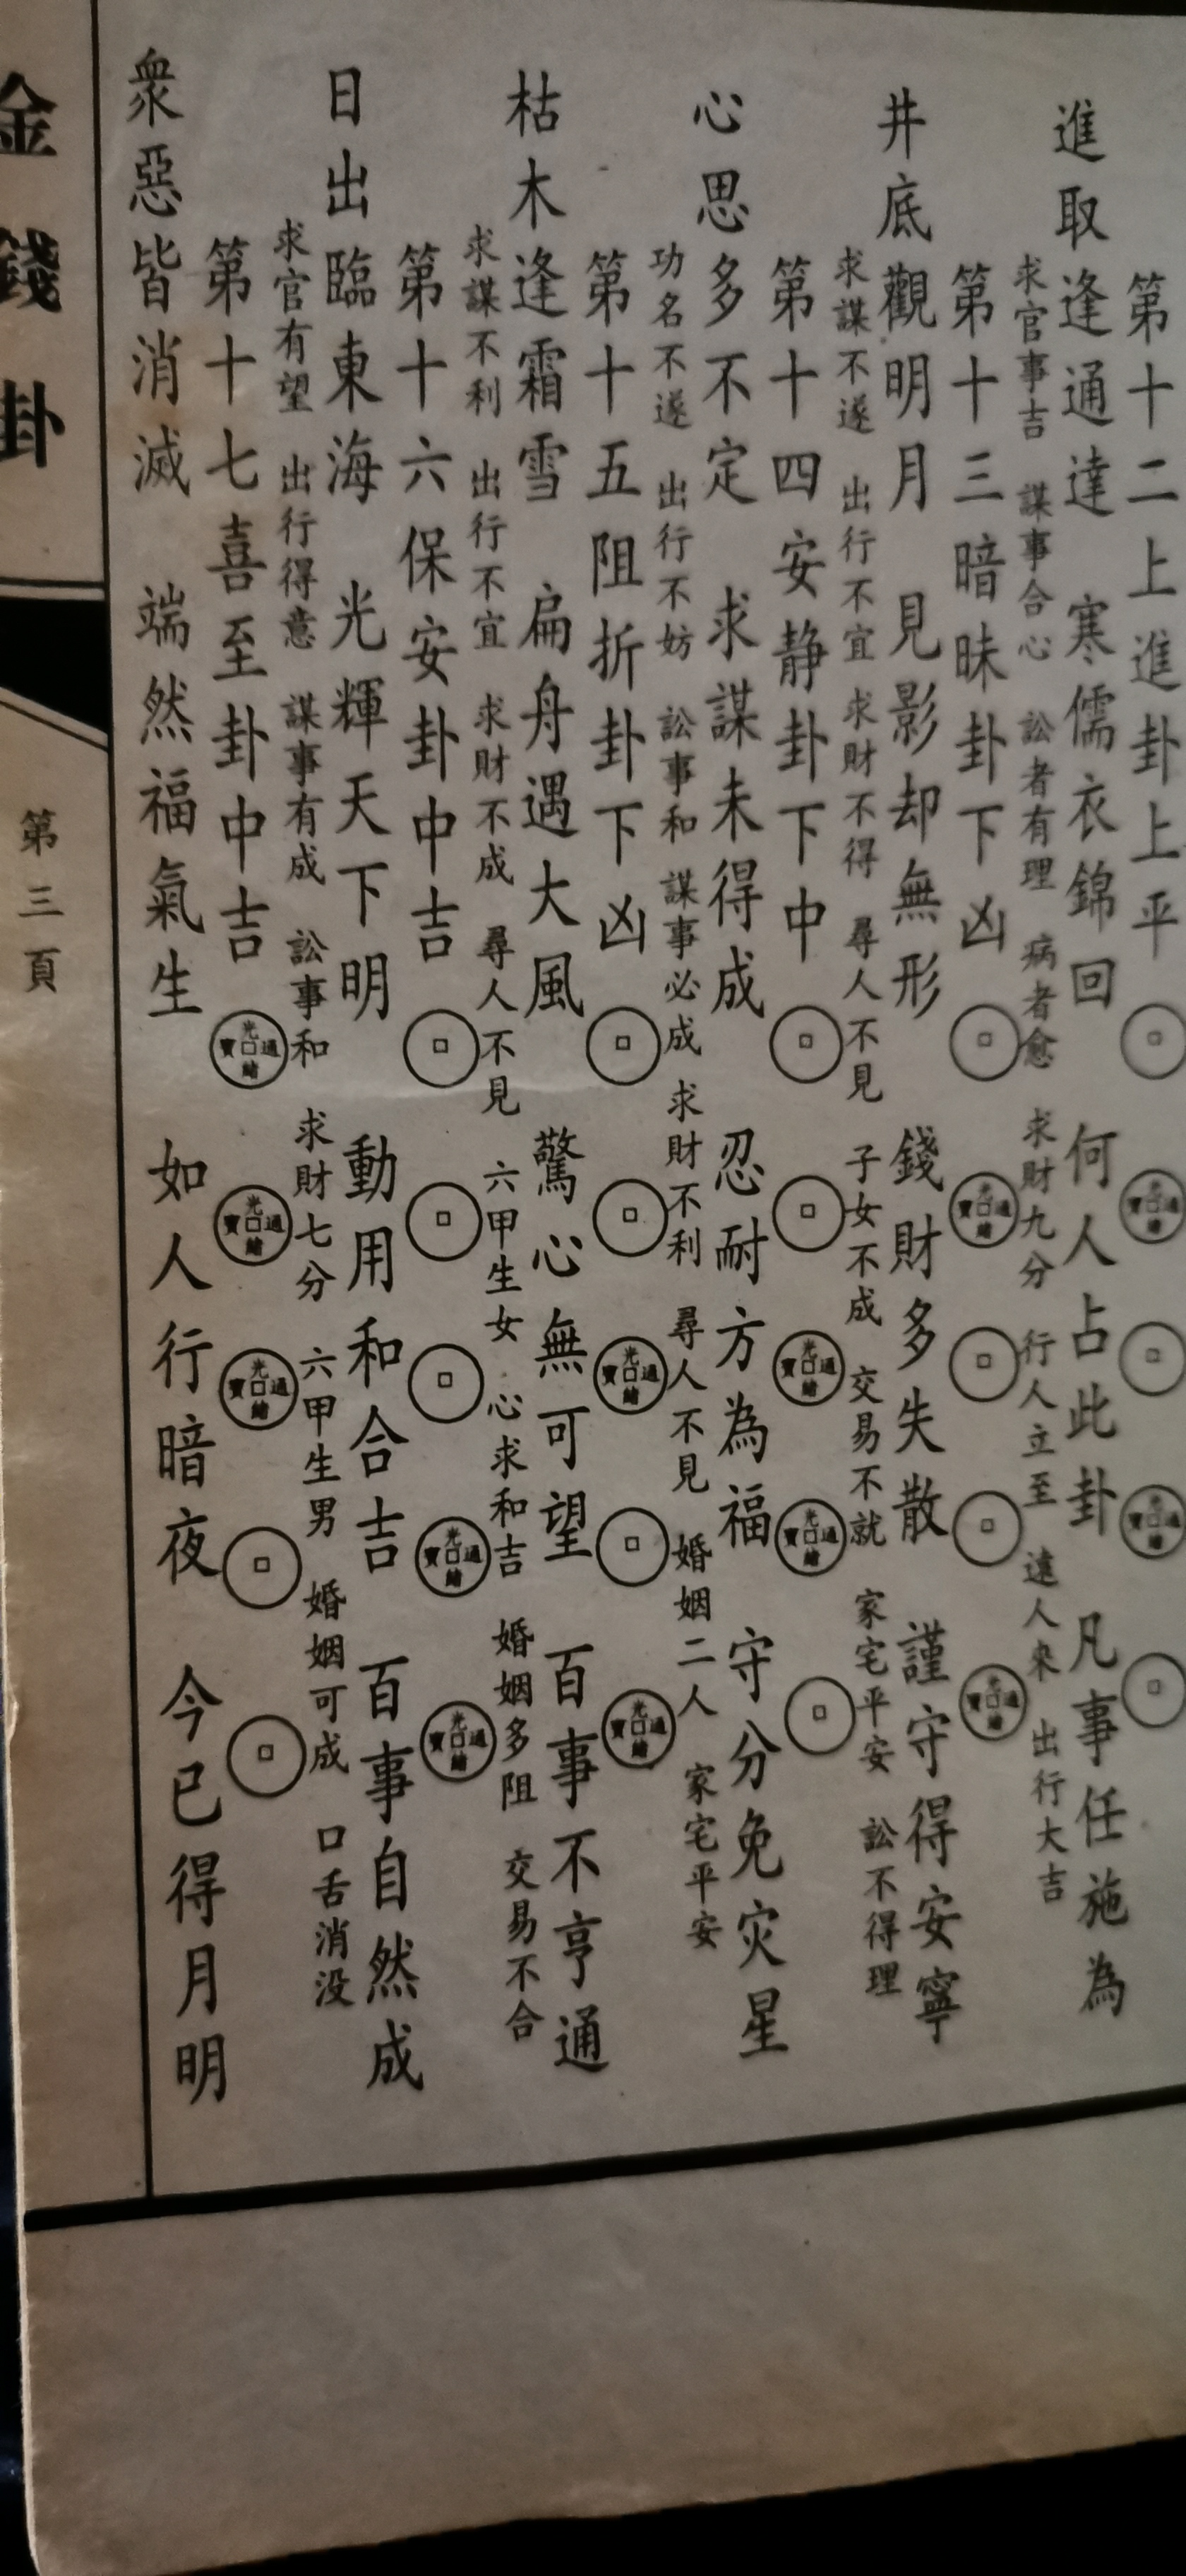 第十二上進卦上平
進取逢通達 寒儒衣錦回 何人占此卦 凡事任施為
求官事吉 謀事合心 訟者有理 病者愈 求財九分 行人立至 遠人來 出行大吉
第十三暗昧卦下凶
井底觀明月 見影却無形 錢財多失散 謹守得安寧
求謀不遂 出行不宜 求財不得 尋人不見 子女不成 交易不就 家宅平安 訟不得理
第十四安静卦下中
心思多不定 求謀未得成 忍耐方為福 守分免灾星
功名不遂 出行不妨 訟事和 謀事必成 求財不利 尋人不見 婚姻二人 家宅平安
第十五阻折卦下凶
枯木逢霜雪 扁舟遇大風 驚心無可望 百事不亨通
求謀不利 出行不宜 求財不成 尋人不見 六甲生女 心求和吉 婚姻多阻 交易不合
第十六保安卦中吉
日出臨東海 光輝天下明 動用和合吉 百事自然成
求官有望 出行得意 謀事有成 訟事和 求財七分 六甲生男 婚姻可成 口舌消没
第十七喜至卦中吉
衆惡皆消滅 端然福氣生 如人行暗夜 今已得月明
金錢卦
第三頁
光緒通寶
光緒通寶
光緒通寶
光緒通寶
光緒通寶
光緒通寶
光緒通寶
光緒通寶
光緒通寶
光緒通寶
光緒通寶
光緒通寶
光緒通寶